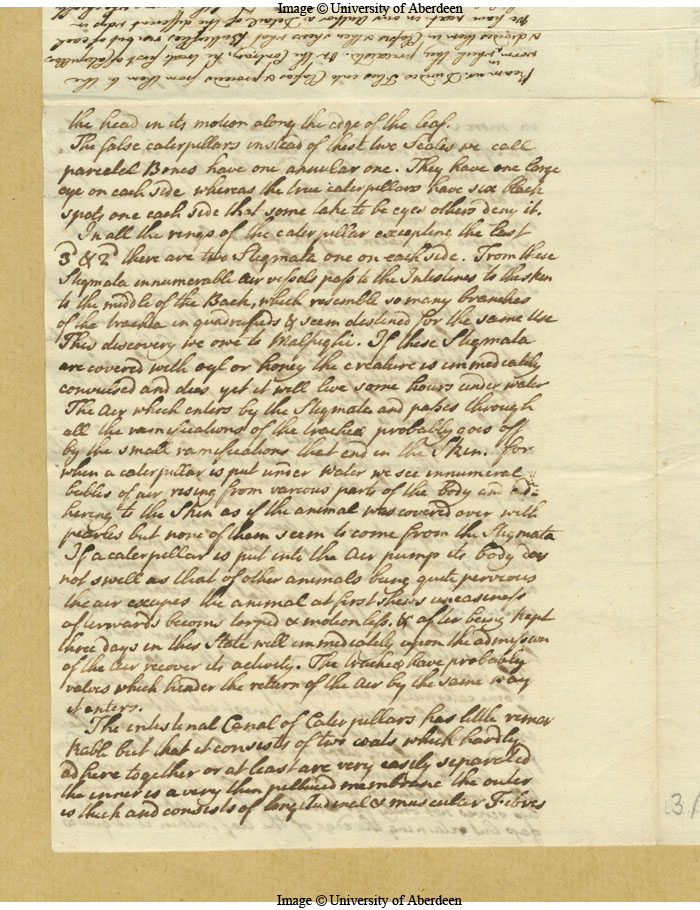 Image © University of Aberdeen
the head in its motion along the edge of the leaf.
The false caterpillars instead of these two scales we call
parietal Bones have one annular one. They have one large
eye on each side whereas the true caterpillars have six black
spots one each side that some take to be eyes others deny it.
In all the rings of the caterpillar excepting the last
3d & 2d there are two Stigmata one on each side. From these
Stigmata innumerable air vessels pass to the Intestines to the skin
to the middle of the Back, which resemble so many branches
of the trachea in quadrupeds & seem destined for the same Use
This discovery we owe to Malpighi. If these Stigmata
are covered with oyl or honey the creature is immediately
convulsed and dies yet it will live some hours under water
The Air which enters by the Stigmata and passes through
all the ramifications of the trachea probably goes off
by the small ramifications that end in the Skin. for
when a caterpillar is put under Water we see innumeral
bubles of air rising from various parts of the body and ad
hering to the Skin as if the animal was covered over with
pearles but none of them seem to come from the Stigmata
If a caterpillar is put into the Air pump its body does
not swell as that of other animals being quite pervious
the air escapes the animal at first shews uneasiness
afterwards becoms torpid & motionless. & after being kept
three days in this State will immediately upon the admission
of the Air recover its activity. The tracheæ have probably
valves which hinder the return of the Air by the same way
it enters.
The intestinal Canal of Caterpillars has little remar
kable but that it consists of two coats which hardly
adhere together or at least are very easily separated
the inner is a very thin pellucid membrane the outer
is thick and consists of longitudinal & muscular Fibres
31
Image © University of Aberdeen